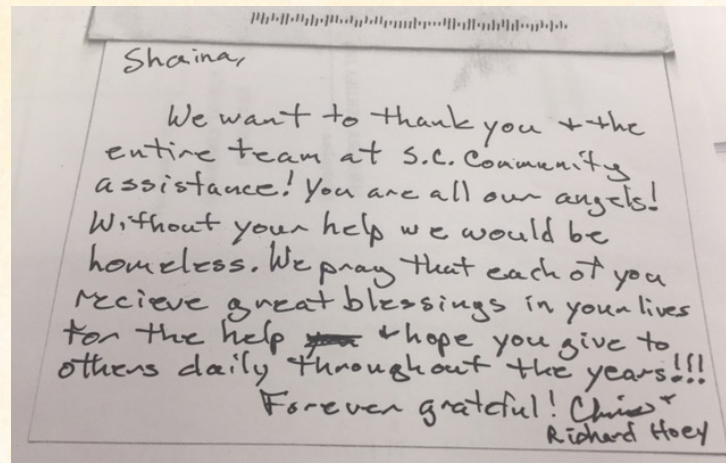 Shaina,
We want to thank you + the
entire team at S.C. Community
assistance! You are all our angels!
Without your help we would be
homeless. We pray that each of you
recieve great blessings in your lives
for the help + hope you give to
others daily throughout the years!!!
Forever grateful! Chris +
Richard Hoey